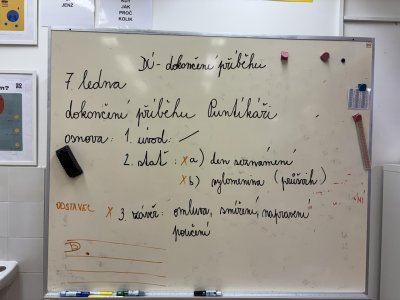 JENŽ
KDY
JAK
PROČ
KOLIK
DÚ - dokončení příběhu
7. ledna
dokončení příběhu Puntíkáři
osnova: 1. úvod:
2. stať: x a) den seznámení
x b) vylomenina (průšvih)
ODSTAVEC x 3. závěr: omluva, smíření, napravení
poučení